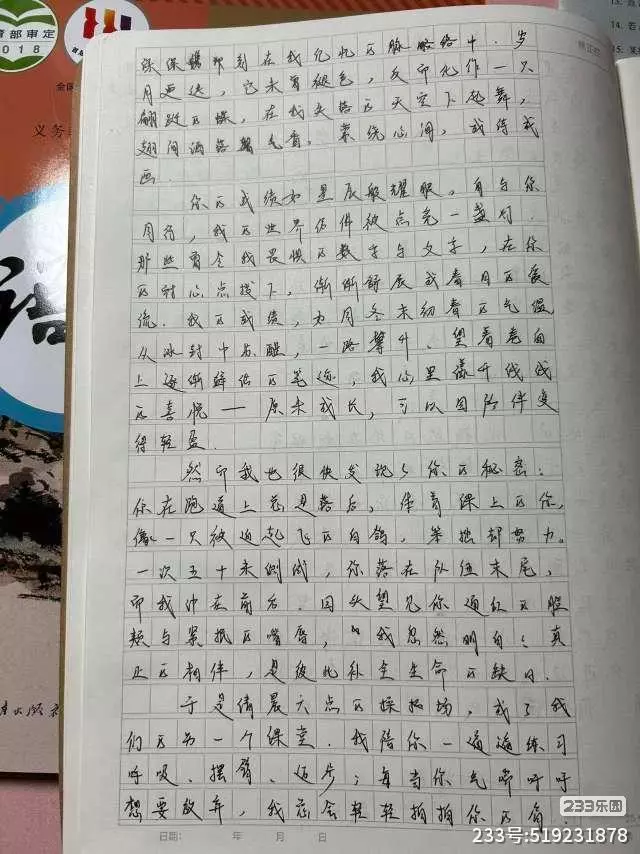 育部审定
2018
全国
义务
语
育出版社
深深镌印刻在我亿忆的脉络中．岁
月更迭，它未曾褪色，反而化作一只
翩跹的蝶，在我头落的天空下起舞，
翅间洒落馨气香，萦绕心间，或诗或
画．
你的成绩如星辰般耀眼，自与你
同行，我的世界仿佛被点亮一盏灯．
那些曾令我畏惧的数字与文字，在你
的耐心点拨下，渐渐舒展成春日的溪
流．我的成绩，如同冬末初春的气温
从冰封中苏醒，一路攀升．望着卷面
上逐渐鲜活的笔迹，我心里漾开线线
的喜悦——原来成长，可以因陪伴变
得轻盈．
然而我也很快发现了你的秘密：
你在跑道上总是落后，体育课上的你，
像一只被迫起飞的白鸽，笨拙却努力．
一次五十米测试，你落在队伍末尾，
而我冲在前后．回头望见你通红的脸
颊与紧抿的嘴唇，我忽然明白：真
正的相伴，是彼此补全生命的缺口．
于是清晨六点的操场，成了我
们的另一个课堂．我陪你一遍遍练习
呼吸、摆臂、迈步；每当你气喘吁吁
想要放弃，我总会轻轻拍拍你的肩．
日期： 年 月 日
233乐园
233号:519231878